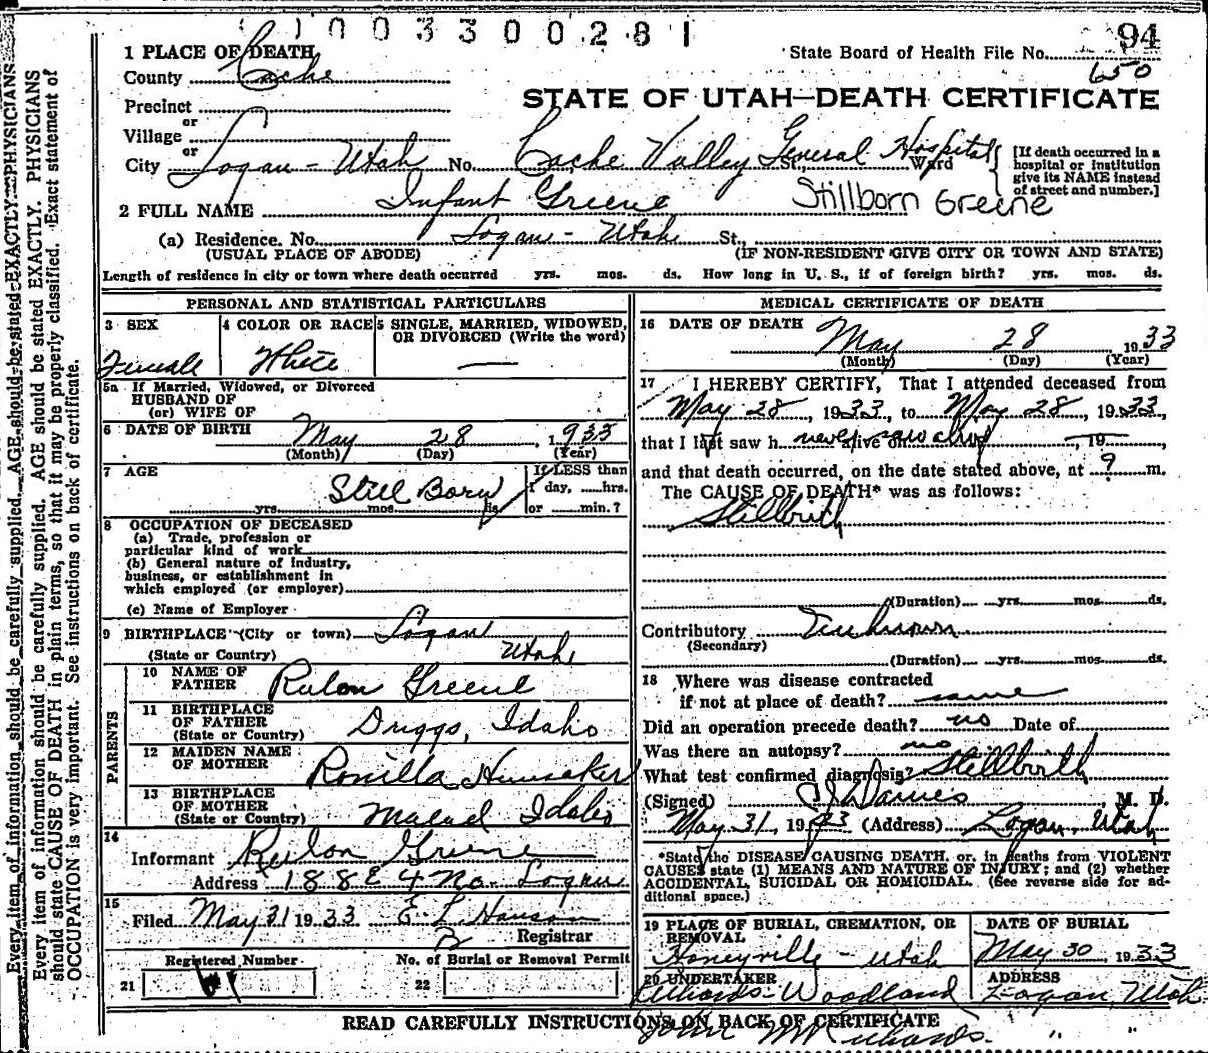 1003300281
94
1 PLACE OF DEATH State Board of Health File No.
650
County Cache
STATE OF UTAH—DEATH CERTIFICATE
Precinct
or
Village
or
City Logan - Utah No. Cache Valley General Hospital St., Ward
[If death occurred in a hospital or institution give its NAME instead of street and number.]
2 FULL NAME Infant Greene Stillborn Greene
(a) Residence. No. Logan - Utah St.,
(USUAL PLACE OF ABODE) (IF NON-RESIDENT GIVE CITY OR TOWN AND STATE)
Length of residence in city or town where death occurred yrs. mos. ds. How long in U. S., if of foreign birth? yrs. mos. ds.
PERSONAL AND STATISTICAL PARTICULARS
3 SEX 4 COLOR OR RACE 5 SINGLE, MARRIED, WIDOWED, OR DIVORCED (Write the word)
Female White —
5a If Married, Widowed, or Divorced
HUSBAND OF
(or) WIFE OF
6 DATE OF BIRTH May 28 1933
(Month) (Day) (Year)
7 AGE Still Born If LESS than
1 day, hrs.
yrs. mos. ds. or min.?
8 OCCUPATION OF DECEASED
(a) Trade, profession or
particular kind of work
(b) General nature of industry,
business, or establishment in
which employed (or employer)
(c) Name of Employer
9 BIRTHPLACE (City or town) Logan
(State or Country) Utah
PARENTS
10 NAME OF FATHER Rulon Greene
11 BIRTHPLACE OF FATHER (State or Country) Driggs, Idaho
12 MAIDEN NAME OF MOTHER Romilla Hunsaker
13 BIRTHPLACE OF MOTHER (State or Country) Idaho
14
Informant Rulon Greene
Address 188 E 4 No. Logan
15
Filed May 31 1933 E. L. Hanson
Registrar
Registered Number No. of Burial or Removal Permit
21 22
MEDICAL CERTIFICATE OF DEATH
16 DATE OF DEATH May 28 1933
(Month) (Day) (Year)
17 I HEREBY CERTIFY, That I attended deceased from
May 28, 1933, to May 28, 1933,
that I last saw h never alive on 19
and that death occurred, on the date stated above, at ? m.
The CAUSE OF DEATH* was as follows:
Stillbirth
(Duration) yrs. mos. ds.
Contributory Unknown
(Secondary)
(Duration) yrs. mos. ds.
18 Where was disease contracted
if not at place of death? same
Did an operation precede death? no Date of
Was there an autopsy? no
What test confirmed diagnosis? Stillbirth
(Signed) M. D.
May 31, 1933 (Address) Logan, Utah
*State the DISEASE CAUSING DEATH, or, in deaths from VIOLENT
CAUSES state (1) MEANS AND NATURE OF INJURY; and (2) whether
ACCIDENTAL, SUICIDAL OR HOMICIDAL. (See reverse side for ad-
ditional space.)
19 PLACE OF BURIAL, CREMATION, OR REMOVAL DATE OF BURIAL
Honeyville - Utah May 30, 1933
20 UNDERTAKER ADDRESS
Woodland Logan, Utah
READ CAREFULLY INSTRUCTIONS ON BACK OF CERTIFICATE
Richards.
Every item of information should be carefully supplied. AGE should be stated EXACTLY. PHYSICIANS
Every item of information should be carefully supplied. AGE should be stated EXACTLY. PHYSICIANS
should state CAUSE OF DEATH in plain terms, so that it may be properly classified. Exact statement of
OCCUPATION is very important. See instructions on back of certificate.